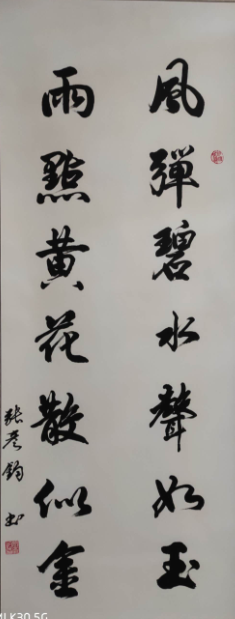 風彈碧水聲如玉
雨點黄花散似金
張彥鈞書
MLK30 5G